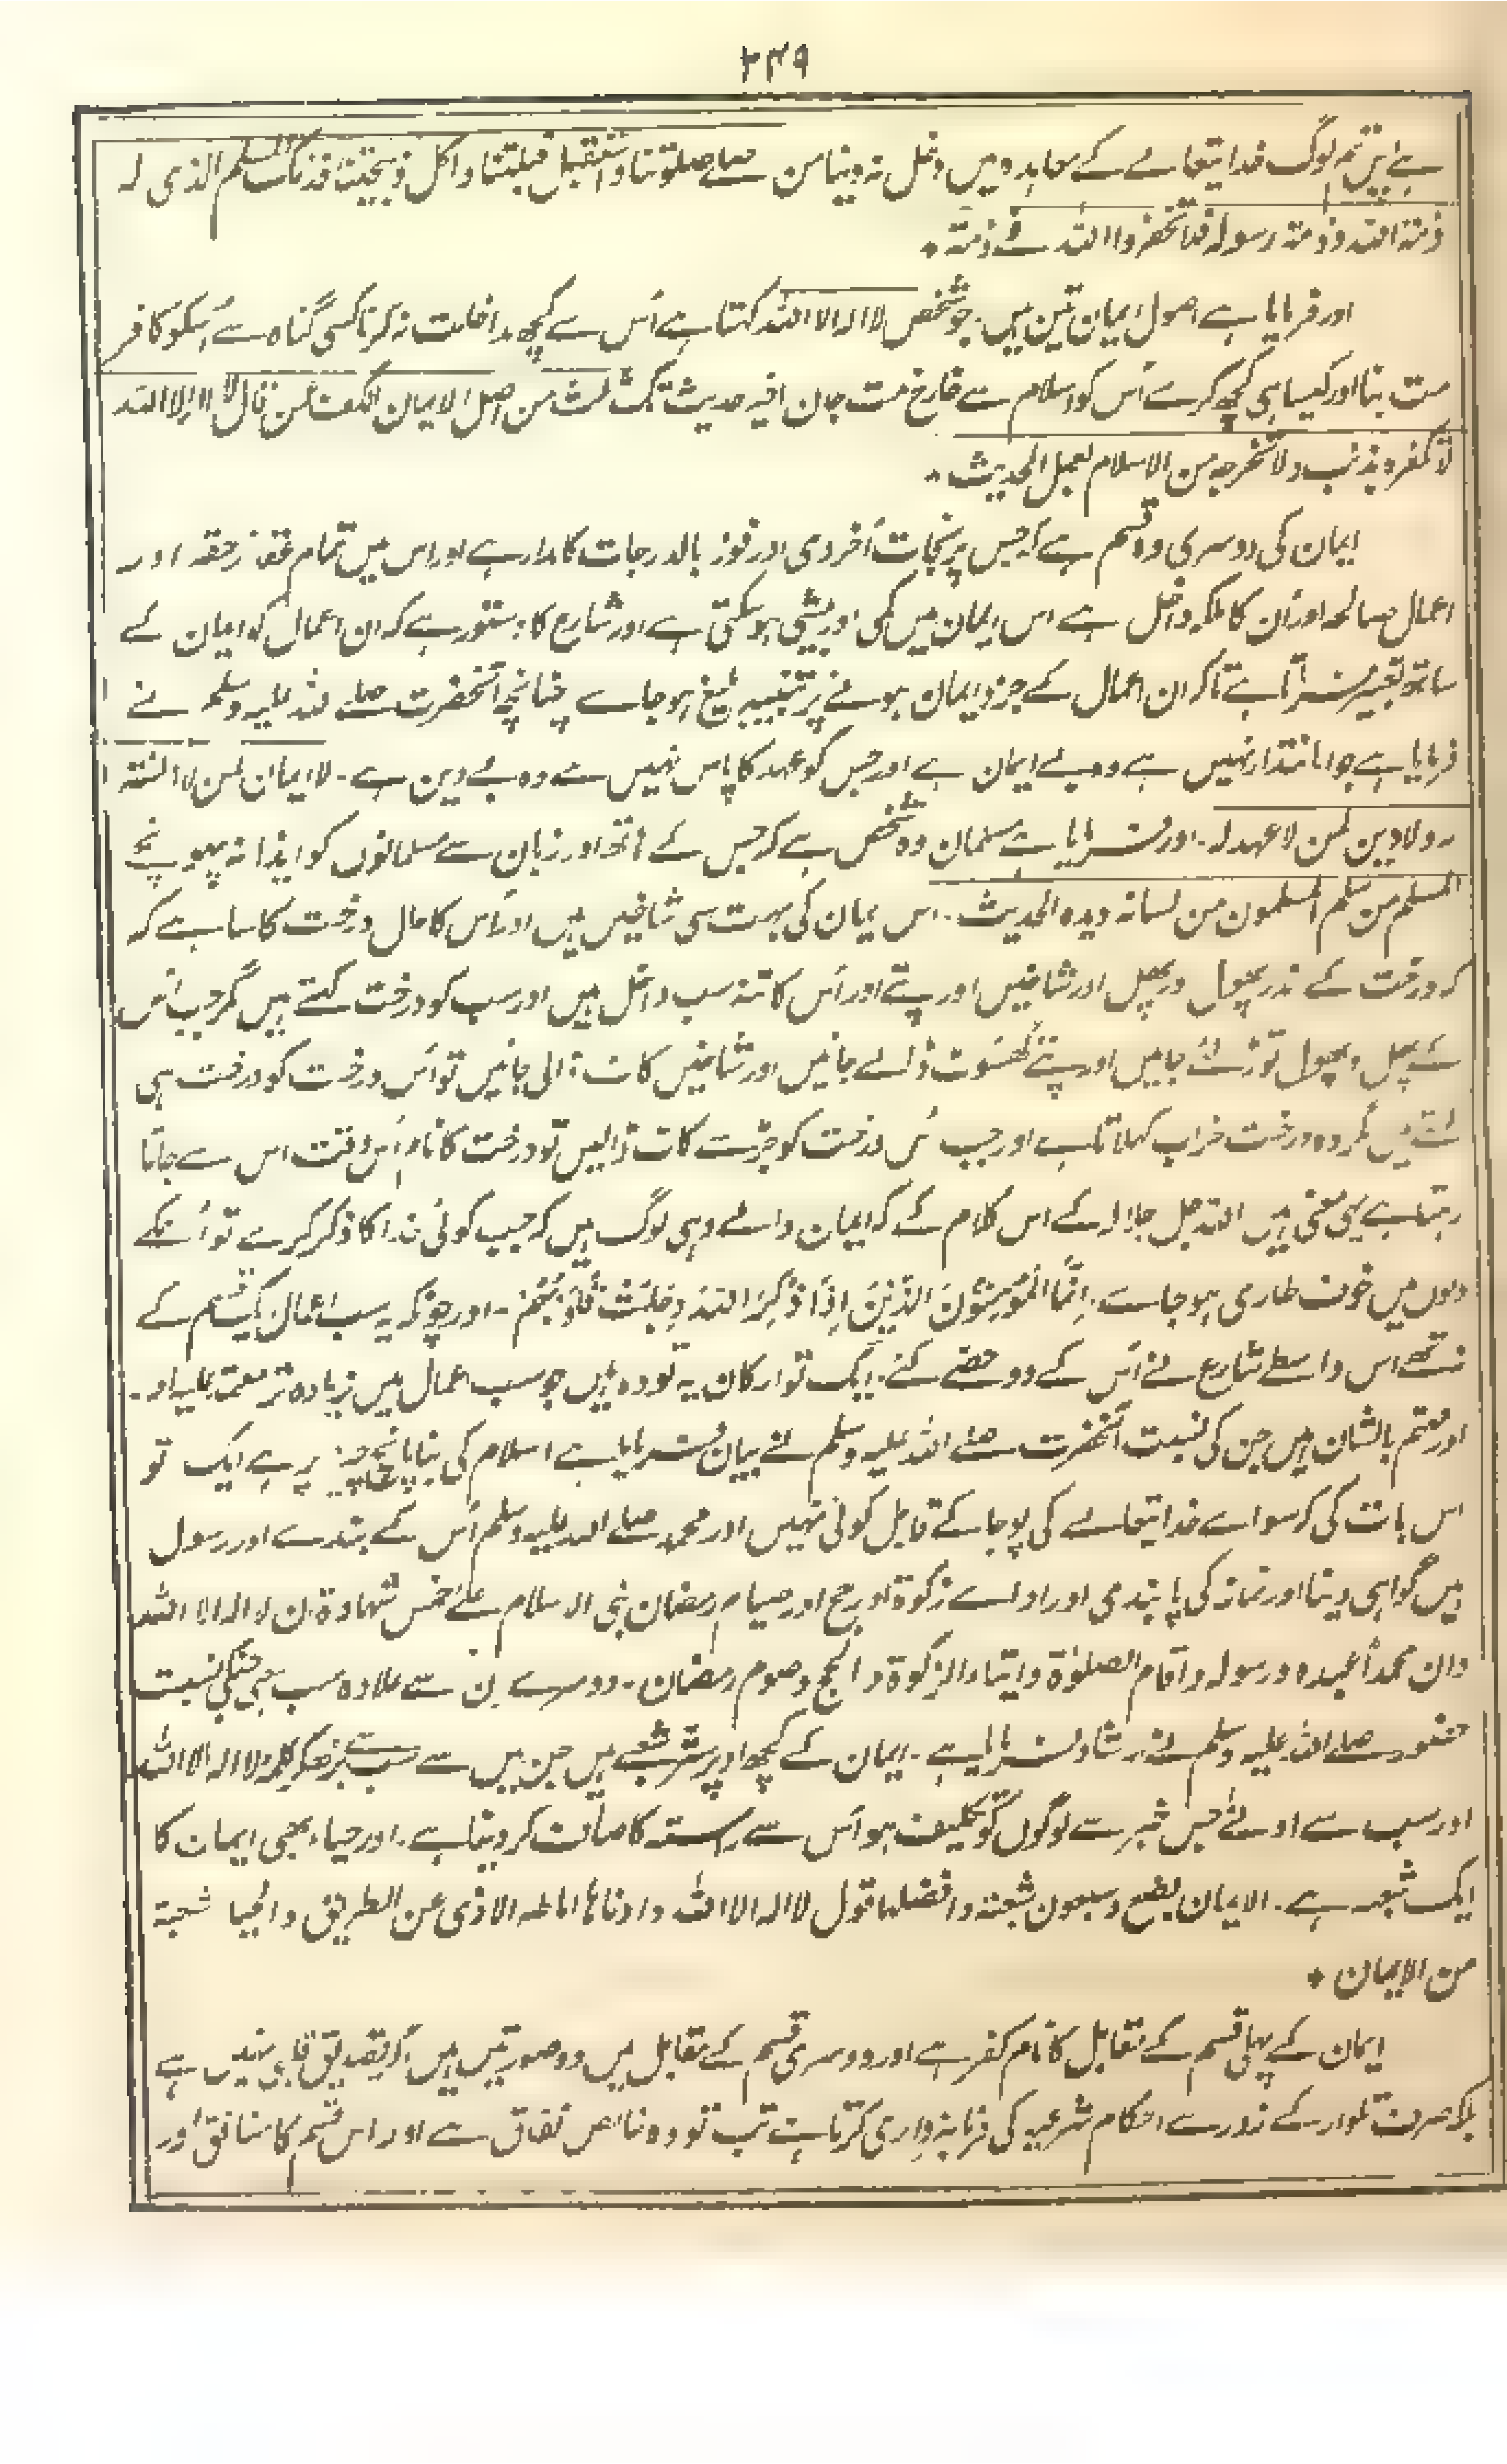 ۲۴۹
ہے پس تم لوگ خدایتعالے کے معاہدہ میں دخل نہ دینا من صلے صلوتنا واستقبل قبلتنا واکل ذبیحتنا فذلک المسلم الذی لہ
ذمۃ اللہ وذمۃ رسولہ فلا تخفروا اللہ فے ذمتہ ٭
اور فرمایا ہے اصول ایمان تین ہیں۔ جو شخص لا الہ الا اللہ کہتا ہے اُس سے کچھ مداخلت نہ کرنا کسی گناہ سے اُسکو کافر
مت بنا اور کیسا ہی کچھ کرے اُس کو اسلام سے خارج مت جان فیہ حدیث ثلث من اصل الایمان الکف عمن قال لا الہ الا اللہ
لا تکفرہ بذنب ولا تخرجہ من الاسلام بعمل الحدیث ٭
ایمان کی دوسری وہ قسم ہے کہ جس پر نجات اُخروی اور فوز بالدرجات کا مدار ہے اور اس میں تمام عقائد حقہ اور
اعمال صالحہ اور اُن کا ملکہ داخل ہے اس ایمان میں کمی اور بیشی ہوسکتی ہے اور شارع کا دستور ہے کہ ان اعمال کو ایمان کے
ساتھ تعبیر فرماتا ہے تاکہ ان اعمال کے جزو ایمان ہونے پر تنبیہ بلیغ ہوجاے چنانچہ آنحضرت صلے اللہ علیہ وسلم نے
فرمایا ہے جو امانتدار نہیں ہے وہ بے ایمان ہے اور جس کو عہد کا پاس نہیں ہے وہ بے دین ہے۔ لا ایمان لمن لا امانتہ
لہ ولا دین لمن لا عہد لہ۔ اور فرمایا ہے مسلمان وہ شخص ہے کہ جس کے ہاتھ اور زبان سے مسلمانوں کو ایذا نہ پہونچے
المسلم من سلم المسلمون من لسانہ ویدہ الحدیث۔ اس ایمان کی بہت سی شاخیں ہیں اور اُس کا حال درخت کا سا ہے کہ
کہ درخت کے اندر پھول اور پھل اور شاخیں اور پتے اور اُس کا تنہ سب داخل ہیں اور سب کو درخت کہتے ہیں مگر جب اُس
کے پھل و پھول توڑ لئے جائیں اور پتے کھسوٹ ڈالے جائیں اور شاخیں کاٹ ڈالی جائیں تو اُس درخت کو درخت ہی
کہتے ہیں مگر وہ درخت خراب کہلاتا ہے اور جب اُس درخت کو جڑ سے کاٹ ڈالیں تو درخت کا نام اُس وقت اس سے جاتا
رہتا ہے یہی معنی ہیں اللہ جل جلالہ کے اس کلام کے کہ ایمان والے وہی لوگ ہیں کہ جب کوئی خدا کا ذکر کرے تو اُنکے
دلوں میں خوف طاری ہوجاے۔ اِنَّمَا الْمُؤْمِنُوْنَ الَّذِیْنَ اِذَا ذُکِرَ اللہُ وَجِلَتْ قُلُوْبُہُمْ۔ اور چونکہ یہ سب اعمال ایک قسم کے
نہ تھے اس واسطے شارع نے اُس کے دو حصے کئے۔ ایک تو ارکان یہ تو وہ ہیں جو سب اعمال میں زیادہ تر معتمد علیہ اور
اور مہتم بالشان ہیں جن کی نسبت آنحضرت صلے اللہ علیہ وسلم نے بیان فرمایا ہے اسلام کی بنا پانچ چیز پر ہے ایک تو
اس بات کی کہ سواے خدایتعالے کی پوجا کے قابل کوئی نہیں اور محمد صلے اللہ علیہ وسلم اُس کے بندے اور رسول
ہیں گواہی دینا اور نماز کی پابندی اور اداے زکوۃ اور حج اور صیام رمضان بنی الاسلام علےٰ خمس شہادۃ ان لا الہ الا اللہ
وان محمداً عبدہ ورسولہ واقام الصلوٰۃ وایتاء الزکوۃ والحج وصوم رمضان۔ دوسرے اِن سے علاوہ سب ہیں جنکی نسبت
حضور صلے اللہ علیہ وسلم نے ارشاد فرمایا ہے۔ ایمان کے کچھ اوپر ستر شعبے ہیں جن میں سے سب سے بڑھکر کلمہ لا الہ الا اللہ
اور سب سے ادنےٰ جس چیز سے لوگوں کو تکلیف ہو اُس سے رستہ کا صاف کر دینا ہے۔ اور حیاء بھی ایمان کا
ایک شعبہ ہے۔ الایمان بضع وسبعون شعبۃ وافضلہا قول لا الہ الا اللہ وادناہا اماطہ الاذی عن الطریق والحیا شعبۃ
من الایمان ٭
ایمان کے پہلی قسم کے مقابل کا نام کفر ہے اور دوسری قسم کے مقابل میں دو صورتیں ہیں اگر تصدیق قلبی نہیں ہے
بلکہ صرف تلوار کے زور سے احکام شرعیہ کی فرمانبرداری کرتا ہے تب تو وہ خالص نفاق ہے اور اس قسم کا منافق اور